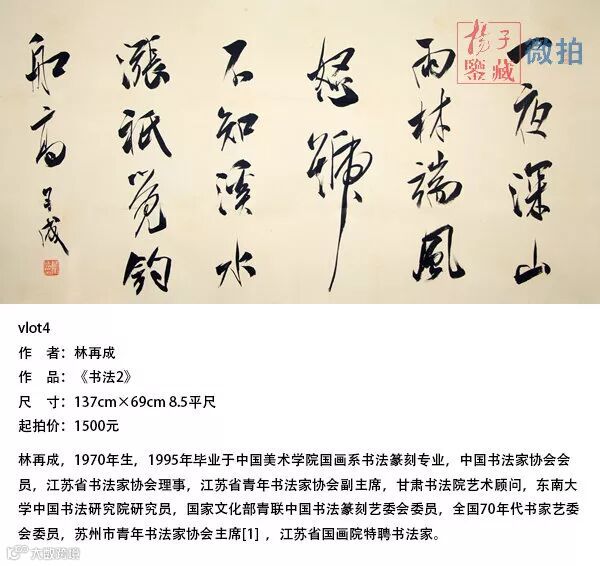 楊子
鑒藏
微拍
一夜深山
雨林端風
怒號
不知溪水
漲祇覺釣
船高 再成
vlot4
作 者：林再成
作 品：《书法2》
尺 寸：137cm×69cm 8.5平尺
起拍价：1500元
林再成，1970年生，1995年毕业于中国美术学院国画系书法篆刻专业，中国书法家协会会
员，江苏省书法家协会理事，江苏省青年书法家协会副主席，甘肃书法院艺术顾问，东南大
学中国书法研究院研究员，国家文化部青联中国书法篆刻艺委会委员，全国70年代书家艺委
会委员，苏州市青年书法家协会主席[1] ，江苏省国画院特聘书法家。
大数跨境